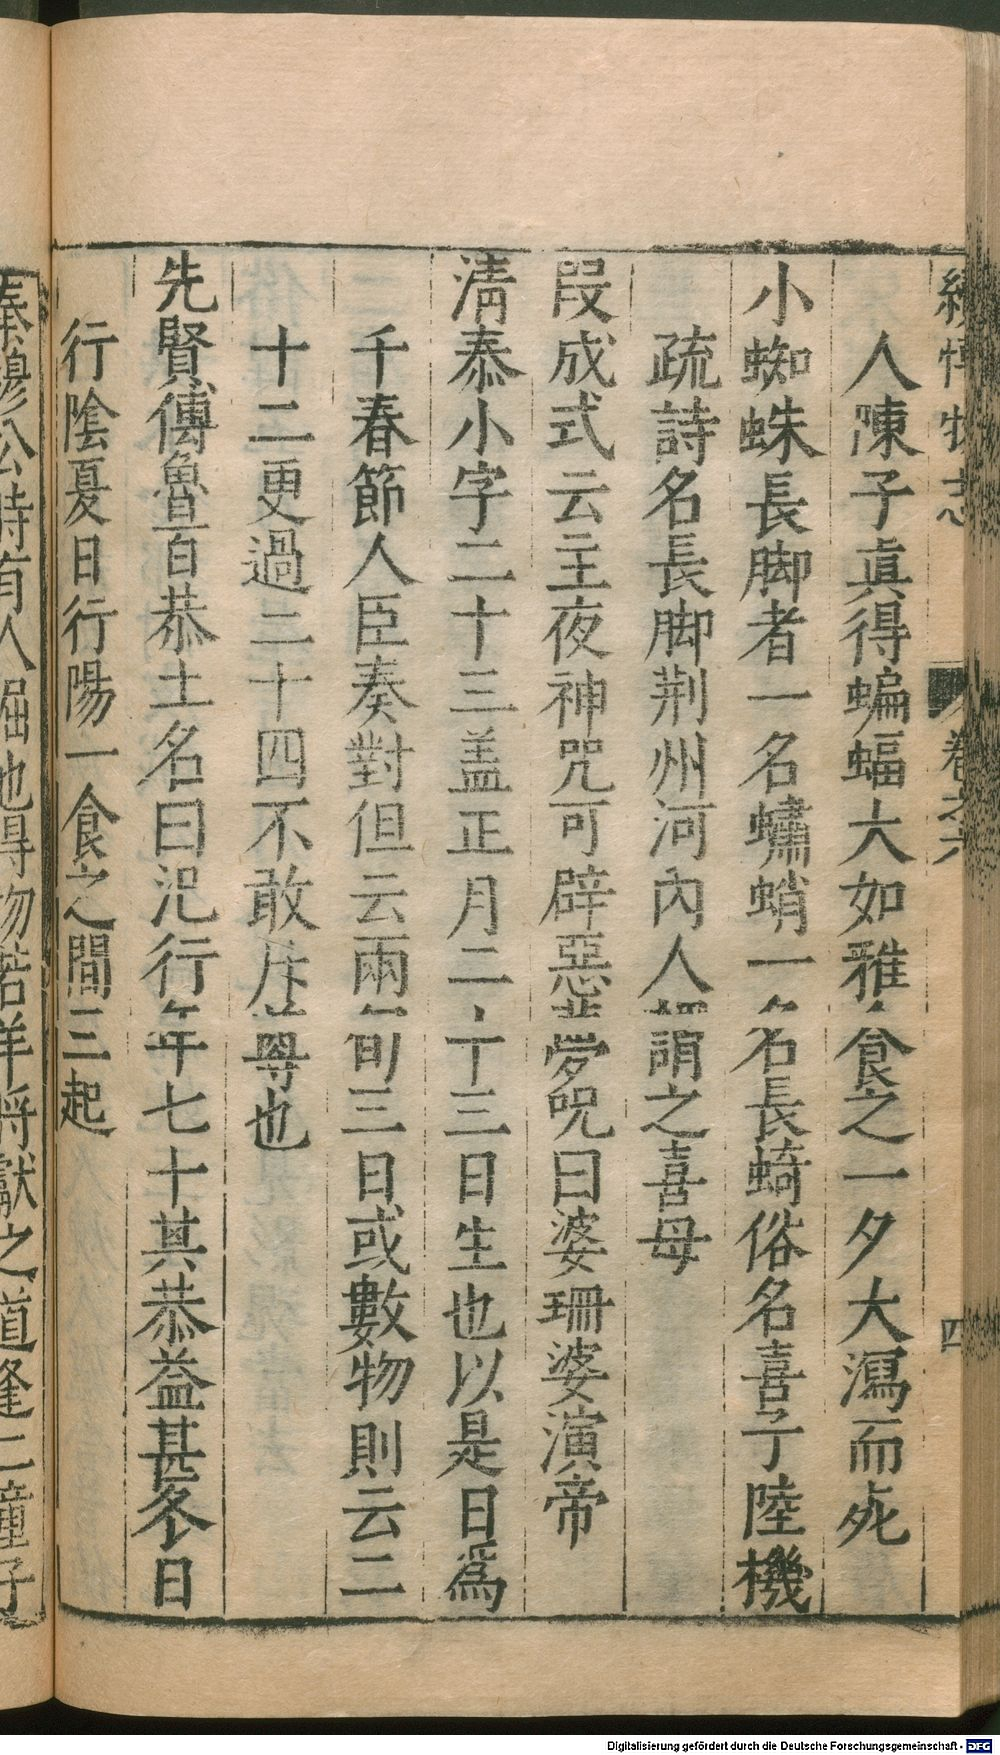 續博物志
卷之六
四
人陳子眞得蝙蝠大如雅食之一夕大瀉而死
小蜘蛛長脚者一名蠨蛸一名長蜻俗名喜子陸機
疏詩名長脚荆州河內人謂之喜母
段成式云主夜神咒可辟惡夢咒曰婆珊婆演帝
淸泰小字二十三盖正月二十三日生也以是日爲
千春節人臣奏對但云兩旬三日或數物則云二
十二更過二十四不敢斥尊也
先賢傳魯百恭士名曰汜行年七十其恭益甚冬日
行陰夏日行陽一食之間三起
秦穆公時有人掘地得物若羊將獻之道逢二童子
Digitalisierung gefördert durch die Deutsche Forschungsgemeinschaft - DFG